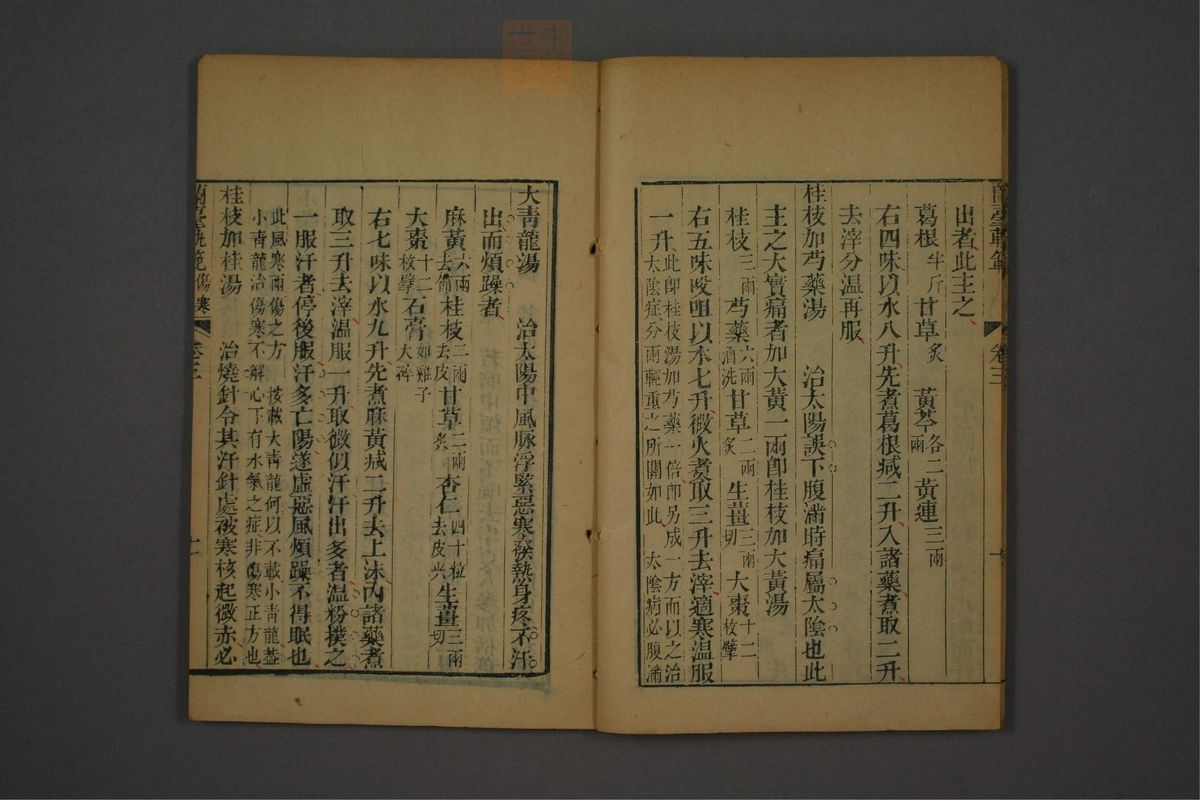 蘭臺軌範
卷三
出者此主之
葛根半斤甘草炙 黃芩各二兩黃連三兩
右四味以水八升先煮葛根減二升入諸藥煮取二升
去滓分温再服
桂枝加芍藥湯 治太陽誤下腹滿時痛屬太陰也此
主之大實痛者加大黃一兩卽桂枝加大黃湯
桂枝三兩芍藥六兩酒洗甘草二兩炙生薑三兩切大棗十二枚擘
右五味㕮咀以水七升微火煮取三升去滓適寒温服
一升此卽桂枝湯加芍藥一倍卽另成一方而以之治
太陰症分兩輕重之所關如此 太陰病必腹滿
大青龍湯 治太陽中風脉浮緊惡寒發熱身疼不汗
出而煩躁者
麻黃六兩去節桂枝二兩去皮甘草二兩炙杏仁四十粒去皮尖生薑三兩切
大棗十二枚擘石膏如雞子大碎
右七味以水九升先煮麻黃減二升去上沫內諸藥煮
取三升去滓温服一升取微似汗汗出多者温粉撲之
一服汗者停後服汗多亡陽遂虛惡風煩躁不得眠也
此風寒兩傷之方 按載大青龍何以不載小青龍葢
小青龍治傷寒不解心下有水氣之症非傷寒正方也
桂枝加桂湯 治燒針令其汗針處被寒核起微赤必
蘭臺軌範傷寒
卷三